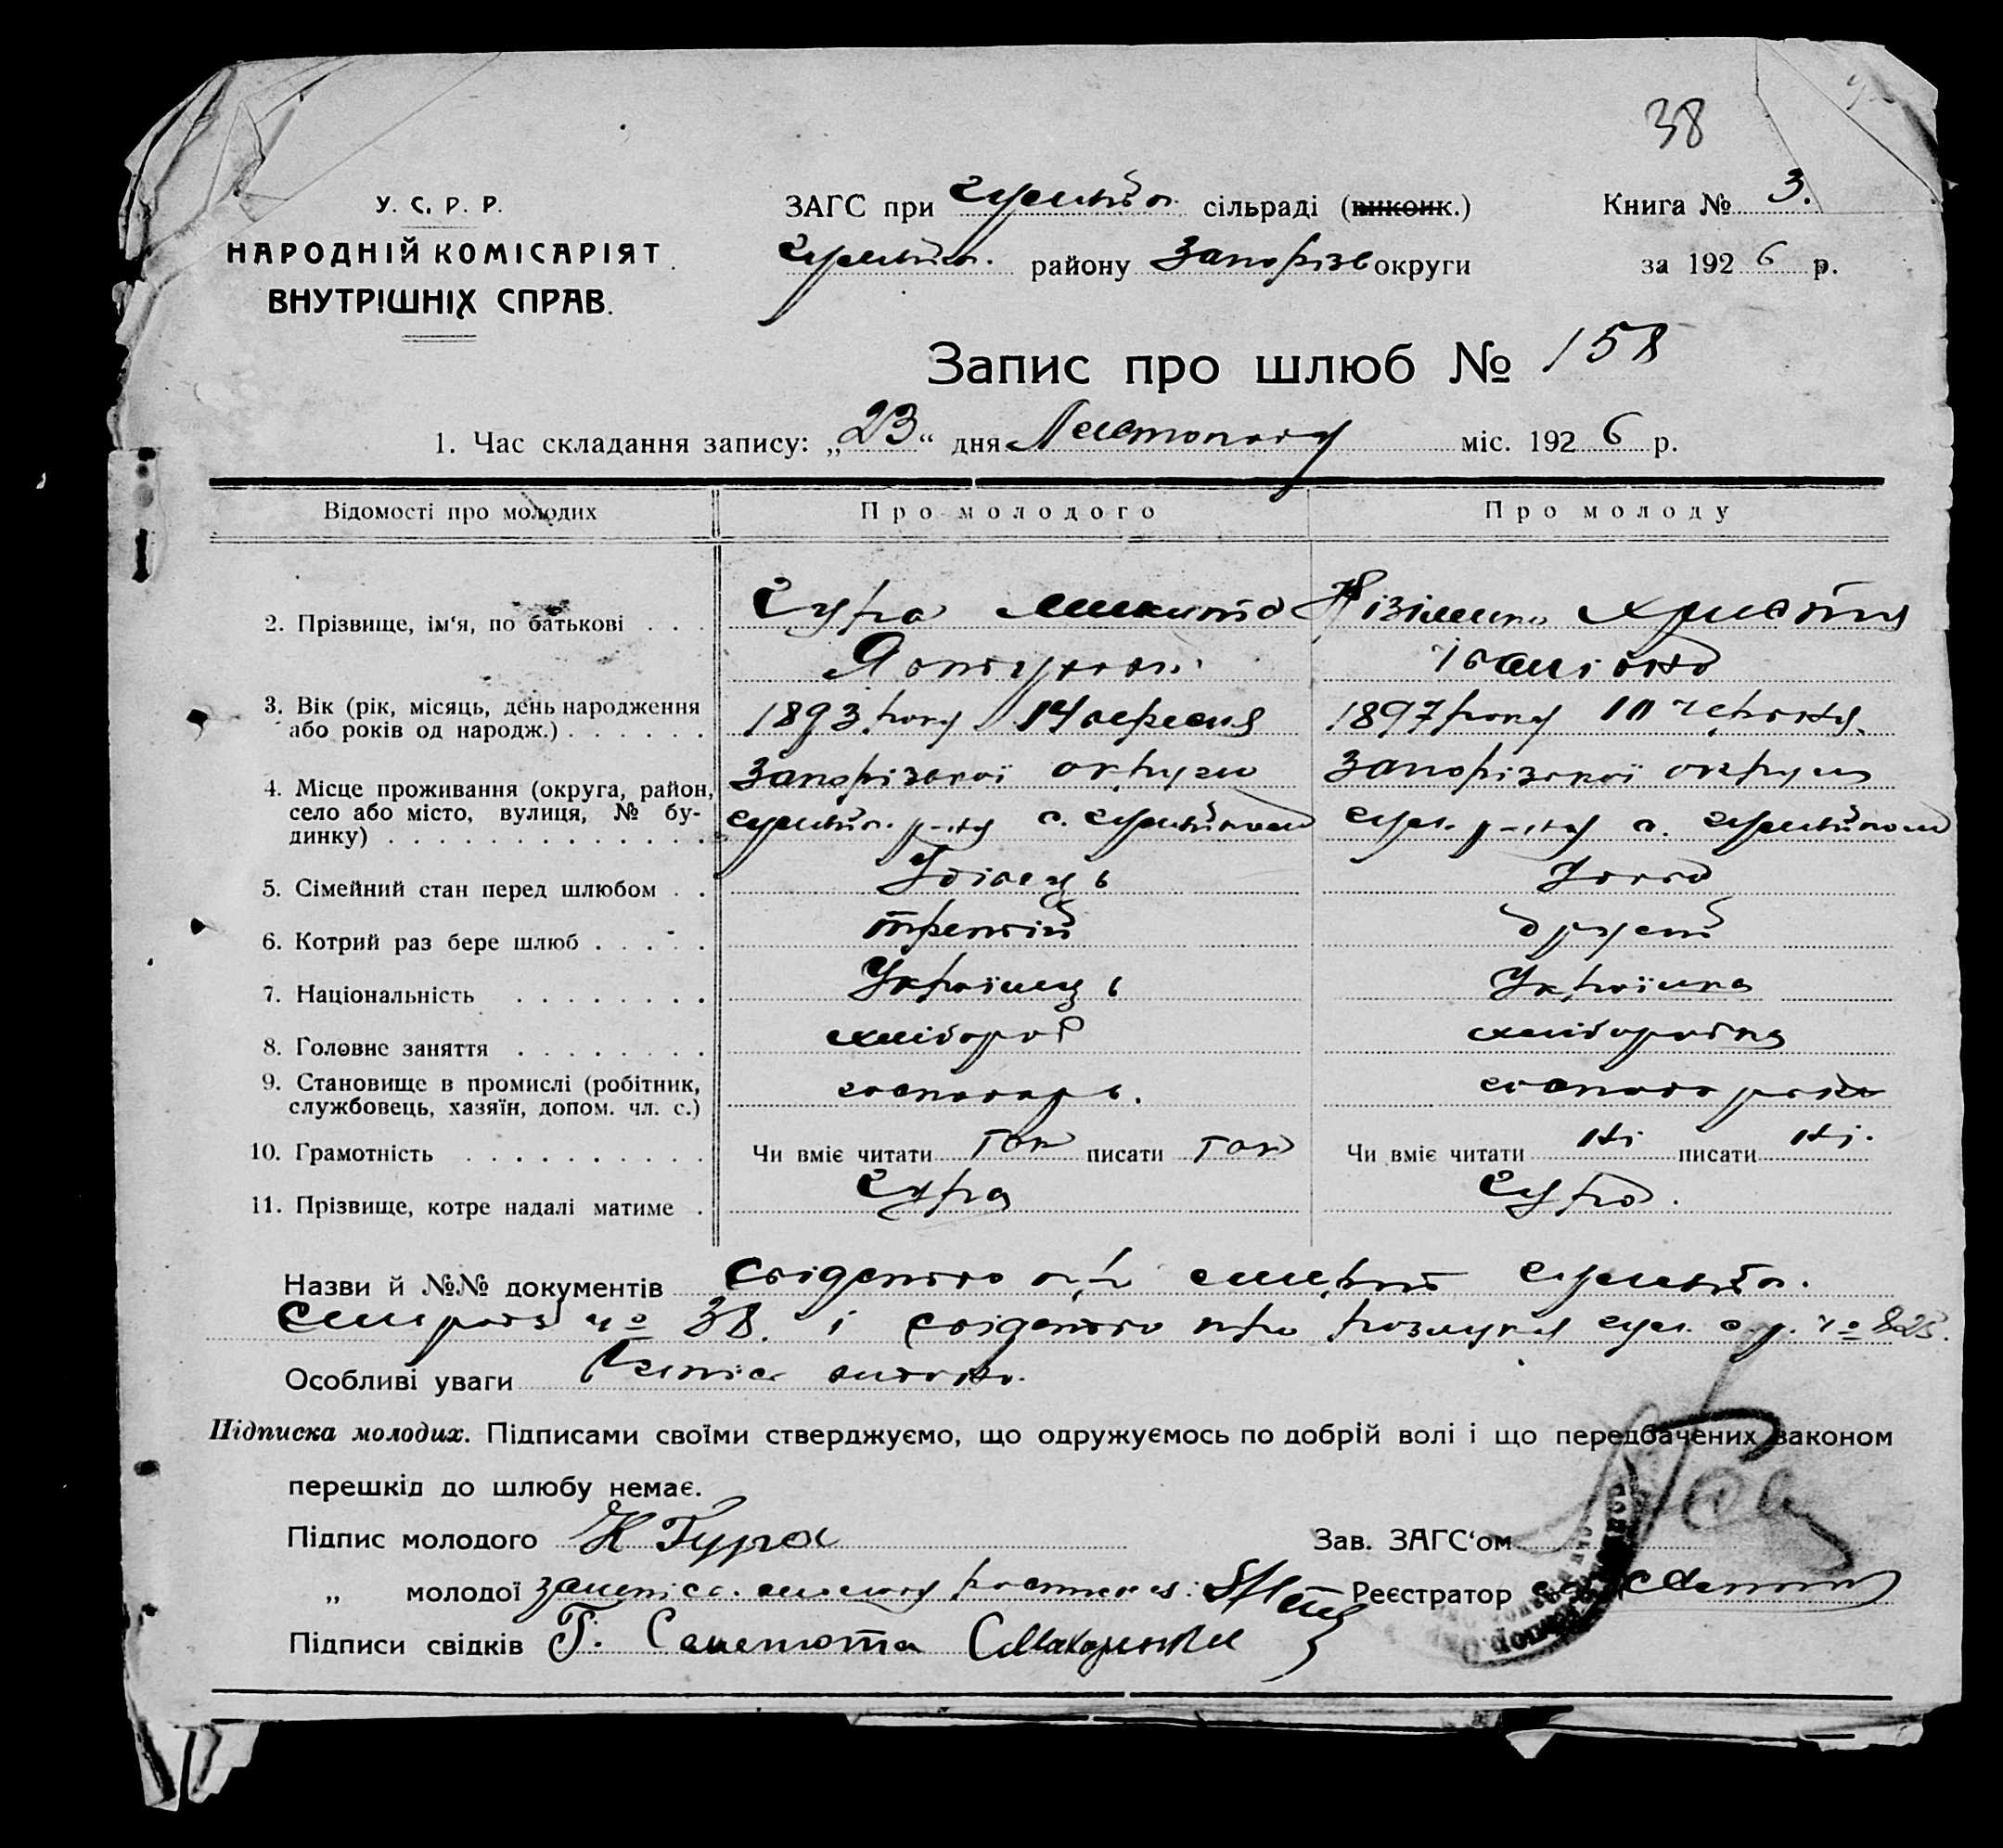 38
У. С. Р. Р.
НАРОДНІЙ КОМІСАРІЯТ
ВНУТРІШНІХ СПРАВ.
ЗАГС при Гуляйпіл. сільраді (викон​к.)
Гуляйпіл. району Запоріз округи
Книга № 3.
за 1926 р.
Запис про шлюб № 158
1. Час складання запису: „23“ дня Листопада міс. 1926 р.
Відомості про молодих Про молодого Про молоду
2. Прізвище, ім‘я, по батькові Гура Микита Христя
Івановна
3. Вік (рік, місяць, день народження або років од народж.) 1893 року 14 вересня 1897 року 10 червня
4. Місце проживання (округа, район, село або місто, вулиця, № будинку) Запорізької округи Запорізької округи
Гуляйпіл. р-ну с. Гуляйполе Гул. р-ну с. Гуляйполе
5. Сімейний стан перед шлюбом Удівець Удова
6. Котрий раз бере шлюб третій другий
7. Національність Українець Українка
8. Головне заняття хлібороб хліборобка
9. Становище в промислі (робітник, службовець, хазяїн, допом. чл. с.) господарь. господарка
10. Грамотність Чи вміє читати так писати так Чи вміє читати ні писати ні.
11. Прізвище, котре надалі матиме Гура Гура.
Назви й №№ документів Свідоцтво про смерть Гуляйпіл.
сільради № 38. і свідоцтво про розлуку Гул.
Особливі уваги
Підписка молодих. Підписами своїми стверджуємо, що одружуємось по добрій волі і що передбачених законом
перешкід до шлюбу немає.
Підпис молодого Н Гура Зав. ЗАГС‘ом
„ молодої Реєстратор
Підписи свідків Г.